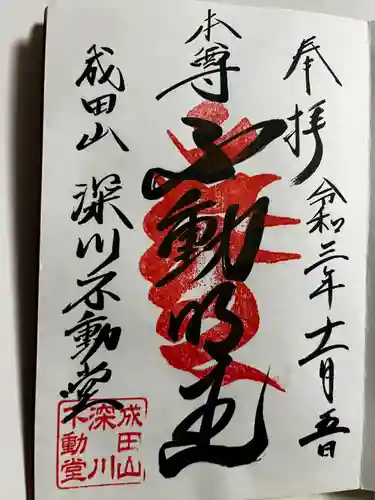 奉拝
令和三年十一月五日
本尊
不動明王
成田山
深川不動堂
成田山
深川
不動堂